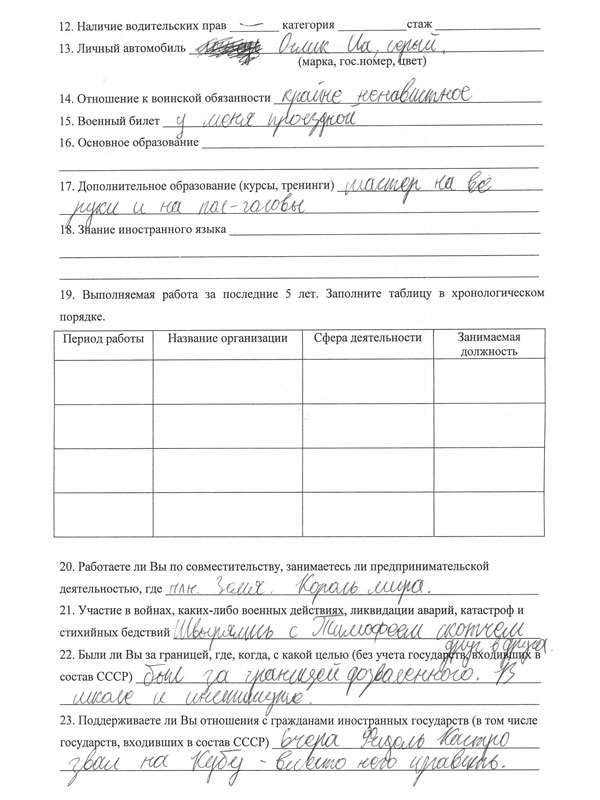 12. Наличие водительских прав — категория ___ стаж ___
13. Личный автомобиль Ослик Иа, серый.
(марка, гос.номер, цвет)
14. Отношение к воинской обязанности крайне ненавистное
15. Военный билет у меня проездной
16. Основное образование
17. Дополнительное образование (курсы, тренинги) мастер на все
руки и на пол-головы
18. Знание иностранного языка
19. Выполняемая работа за последние 5 лет. Заполните таблицу в хронологическом
порядке.
Период работы Название организации Сфера деятельности Занимаемая
должность
20. Работаете ли Вы по совместительству, занимаетесь ли предпринимательской
деятельностью, где пл. Земля. Король мира.
21. Участие в войнах, каких-либо военных действиях, ликвидации аварий, катастроф и
стихийных бедствий Швырялись с Тимофеем скотчем
друг в друга.
22. Были ли Вы за границей, где, когда, с какой целью (без учета государств, входивших в
состав СССР) был за границей дозволенного. В
школе и институте.
23. Поддерживаете ли Вы отношения с гражданами иностранных государств (в том числе
государств, входивших в состав СССР) вчера Фидель Кастро
звал на Кубу - вместо него править.